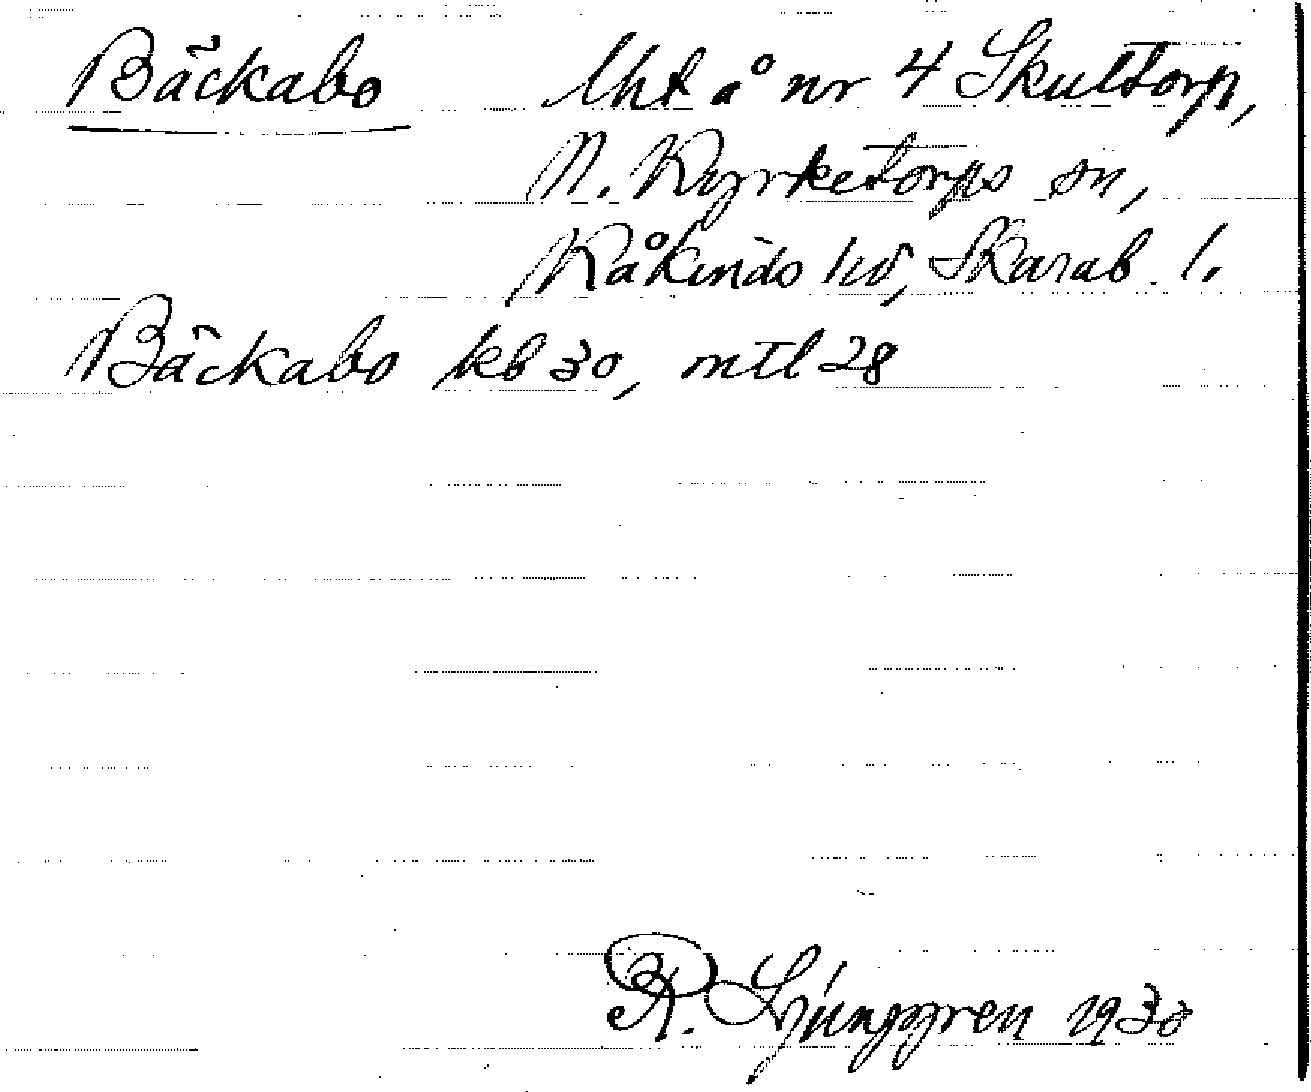 Bäckabo lht å nr 4 Skultorp,
N. Kyrketorps sn,
Kåkinds hd, Skarab. l.
Bäckabo kb 30, mtl 28
R. Ljunggren 1930